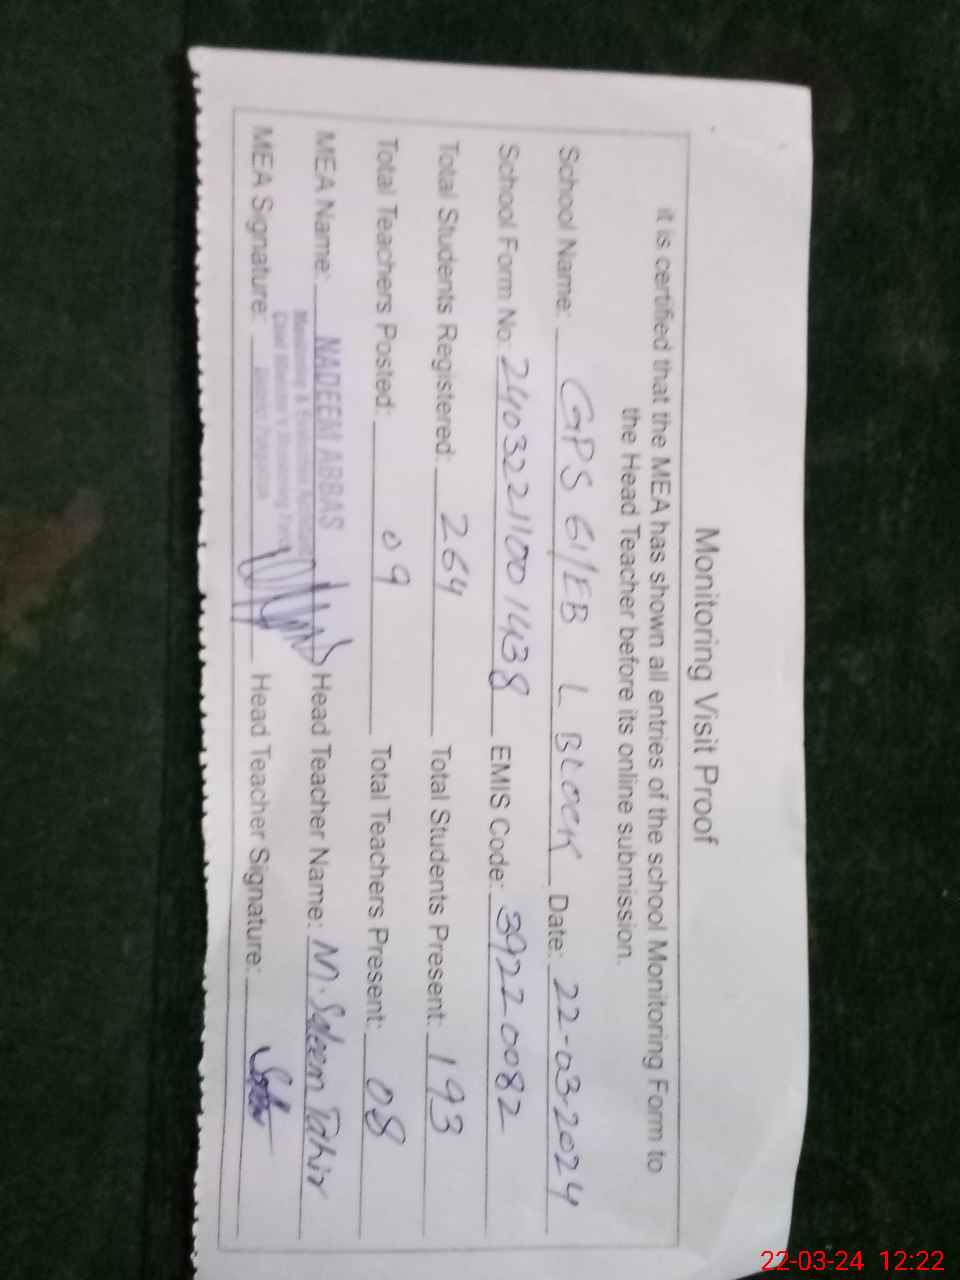 Monitoring Visit Proof
it is certified that the MEA has shown all entries of the school Monitoring Form to
the Head Teacher before its online submission.
School Name: GPS 61/EB L BLOCK Date: 22-03-2024
School Form No: 24032211001438 EMIS Code: 39220082
Total Students Registered: 264 Total Students Present: 193
Total Teachers Posted: 09 Total Teachers Present: 08
MEA Name: NADEEM ABBAS Head Teacher Name: M. Saleem Tahir
Monitoring & Evaluation Assistant
MEA Signature: Head Teacher Signature:
22-03-24 12:22